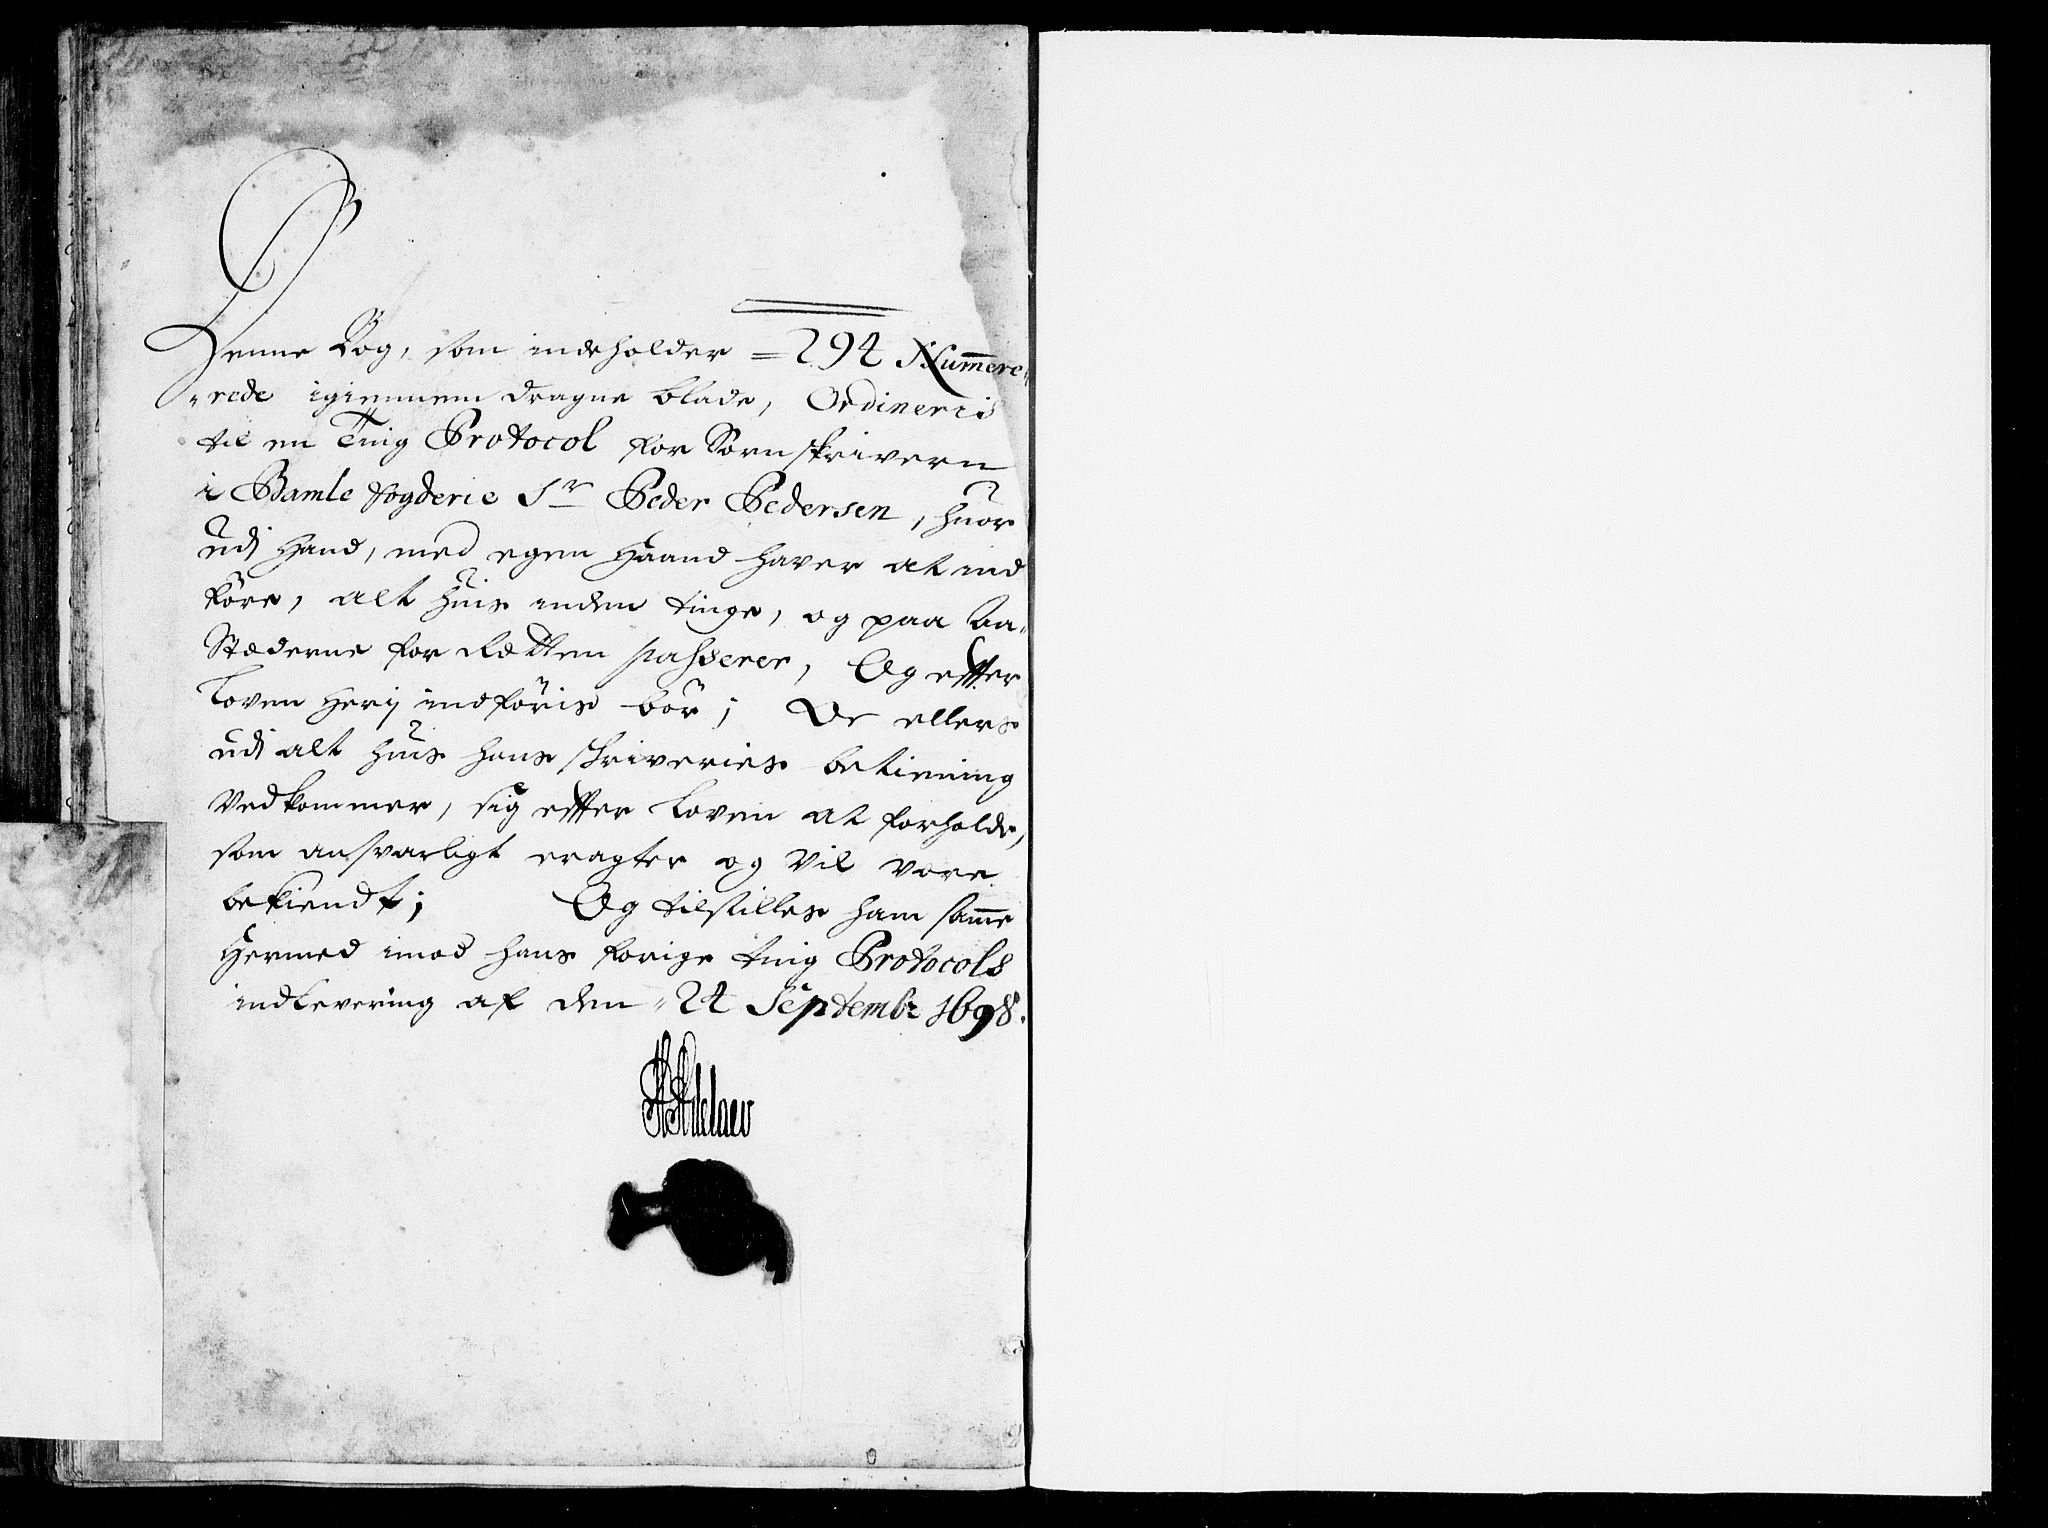 Denne Bog, som indeholder = 294 Num̄ere„
„rede igiennem dragne blade, Ordineris
til en Ting Protocol for Sornskrivern
i Bamle fogderie Sr Peder Pedersen, huor
udj Hand, med egen Haand hafver at ind
føre, alt huis inden tinge, og paa Aa„
Stæderne for Rætten passerer, Og effter
Loven Herj indføris bør; De ellers
udj alt huis hans skriveries betiening
Vedkommer, sig effter Loven at forholde,
som ansvarligt eragter og Vil være
bekiendt; Og tilstilles ham sam̄e
Hermed imod hans forrige ting Protocols
indlevering af den „ 24 Septembr 1698.
Adelaer